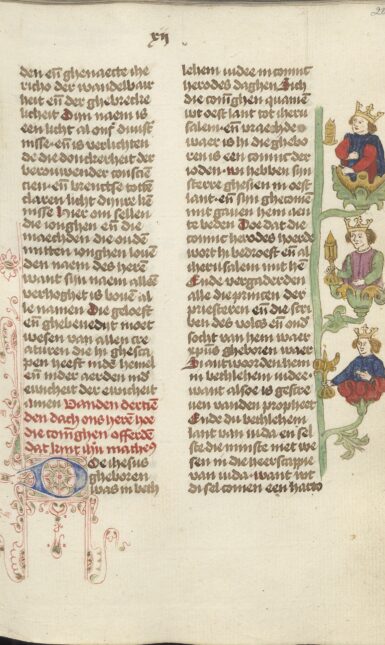 xij
den eñ ghenaecte ihe
richo der wandelbaer
heit eñ der ghebreke
licheit Dijn naem is
een licht al ons duust
nisse eñ is verlichten
de die donckerheit der
verouwender conscien
cien eñ brenctse totte
claren licht dijnre ken
nisse Hier om sellen
die ionghen eñ die
maechden die oude
mitten ionghen louē
den naem des heren
want sijn naem allee
verhoghet is bouē al
le namen Die gelooft
eñ ghebenedijt moet
wesen van allen cre
aturen die hi ghesca
pen heeft inde hemel
eñ inder aerden ind
ewicheit der ewicheit
amen Vanden dertiē
den dach ons herē hoe
die conighen offerdē
dat seit sijn matheus
Doe ihesus
gheboren
was in beth
lehem iudee in conincs
herodes daghen Sich
die conighen quamē
wt oest lant tot iheru
salem eñ vraechdē
waer is hi die ghebo
ren is een coninc der
ioden wi hebben sijn
sterre ghesien in oest
lant eñ sijn ghecomē
mit gauen hem aen
te beden Doe dat die
coninc herodes hoerde
wort hi bedroeft eñ al
iherusalem mit hē
Ende vergaderden
alle die princen der
priesteren eñ die scri
ben des volcs eñ ond
socht van hem waer
xpūs gheboren waer
Si antwoorden hem
in bethlehem iudee
want also is gescre
uen vanden prophet
Ende du bethlehem
lant van iuda en sel
ste die minste niet we
sen in die heerscappie
van iuda want wt
di sel comen een harto